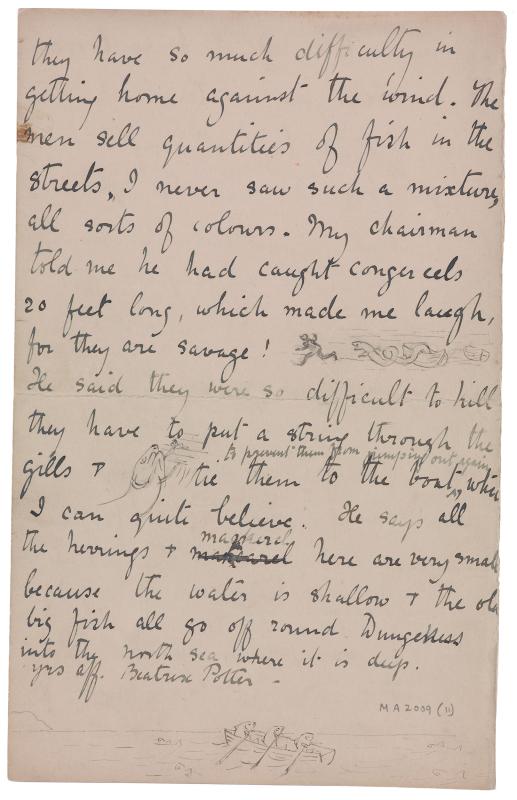 they have so much difficulty in
getting home against the wind. The
men sell quantities of fish in the
streets, I never saw such a mixture,
all sorts of colours. My chairman
told me he had caught conger eels
20 feet long, which made me laugh,
for they are savage!
He said they were so difficult to kill
they have to put a string through the
to prevent them from jumping out again
gills + tie them to the boat, which
I can quite believe. He says all
mackerel
the herrings + here are very small
because the water is shallow + the old
big fish all go off round Dungeness
into the north sea where it is deep.
yrs aff. Beatrix Potter -
MA2009 (11)